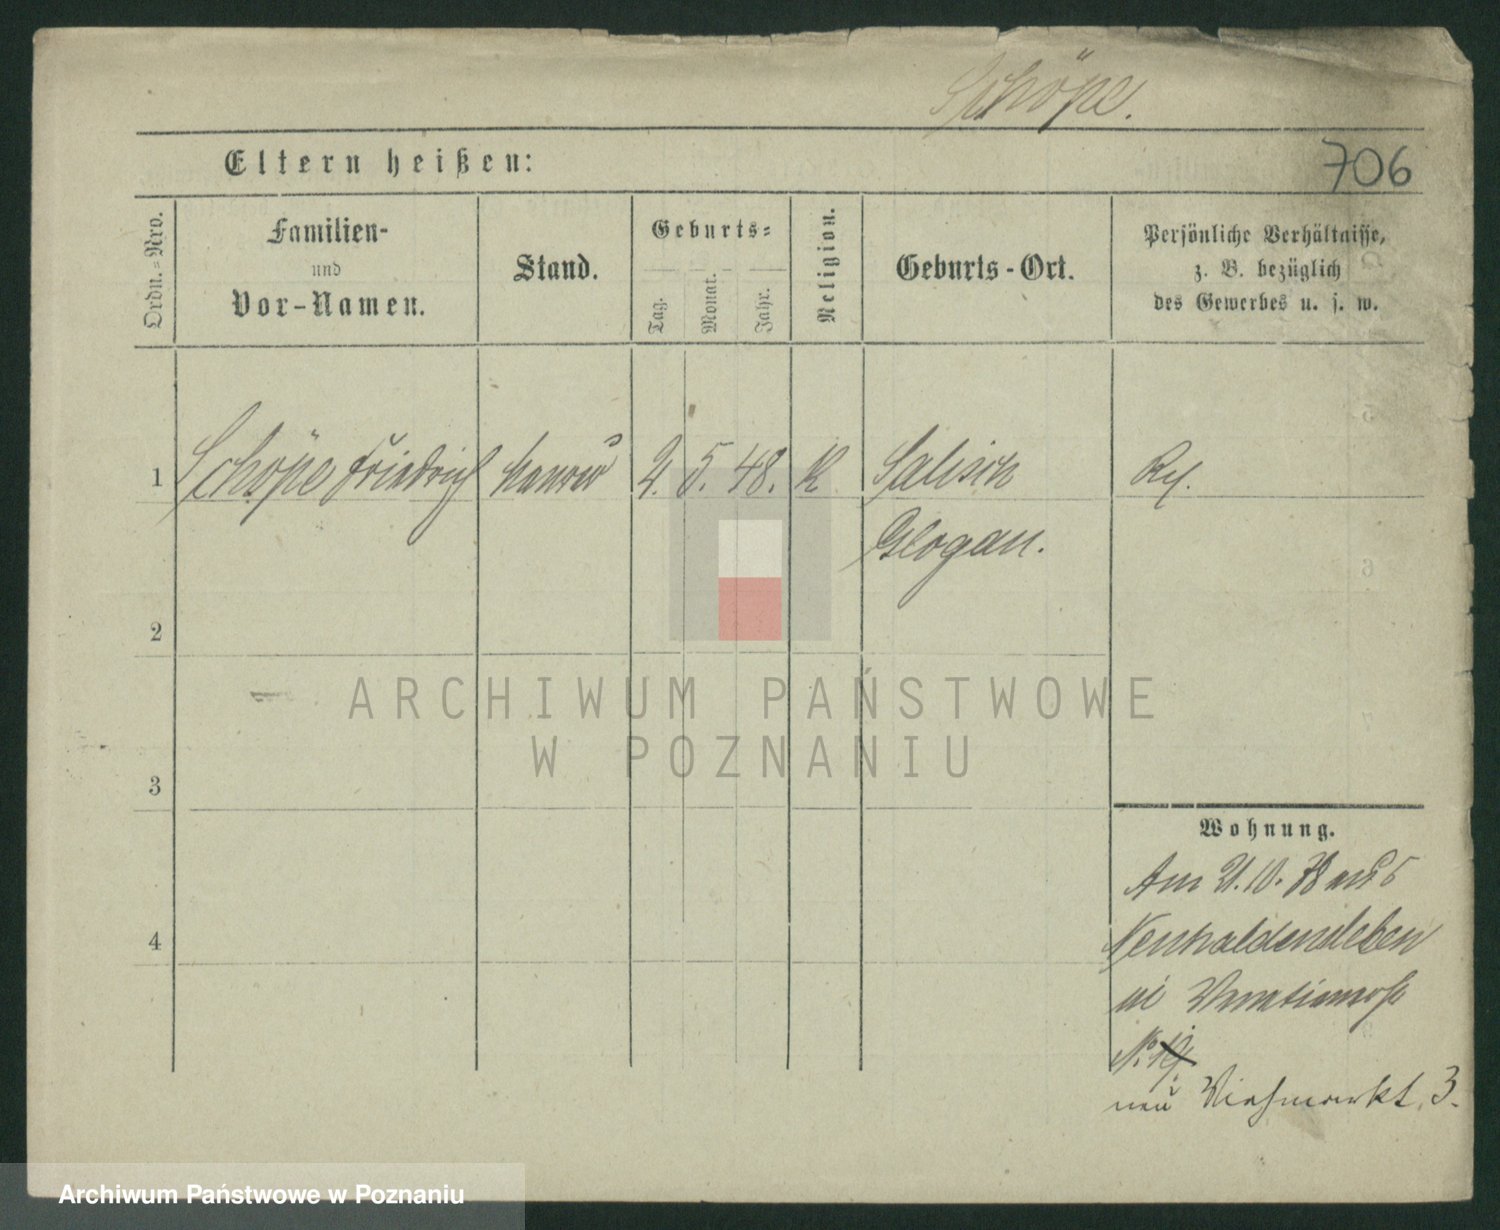 Schöpe.
Eltern heißen:
706
Ordn.=Nro.
Familien-
und
Vor-Namen.
Stand.
Geburts=
Tag.
Monat.
Jahr.
Religion.
Geburts-Ort.
Persönliche Verhältnisse,
z. B. bezüglich
des Gewerbes u. s. w.
1 Schöpe Friedrich 2. 5. 48. K Salisch
Glogau.
2
3
4
ARCHIWUM PAŃSTWOWE
W POZNANIU
Wohnung.
Am 21.10.78 aus
Neuhaldensleben
No.
neu Viehmarkt 3.
Archiwum Państwowe w Poznaniu